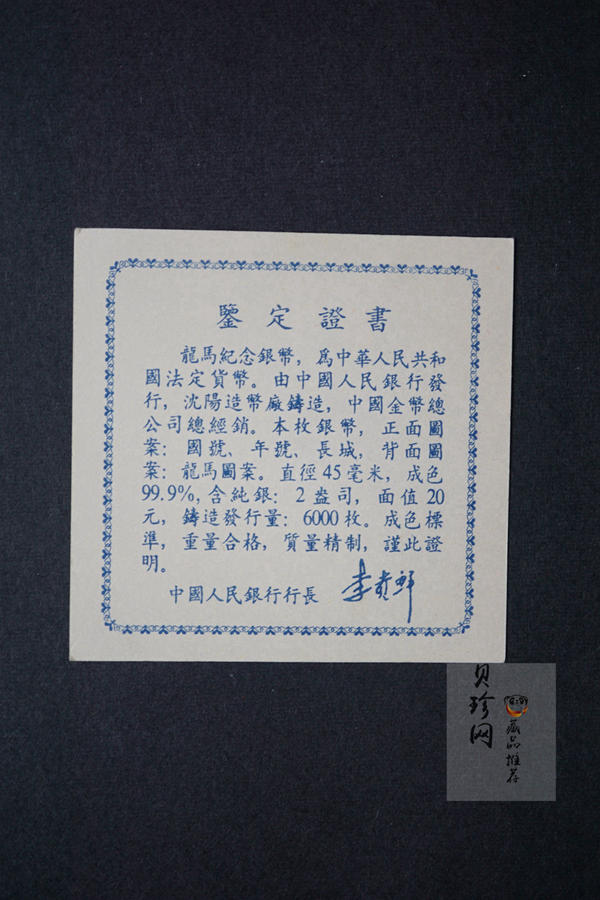 鑒定證書
龍馬紀念銀幣，爲中華人民共和
國法定貨幣。由中國人民銀行發
行，沈陽造幣廠鑄造，中國金幣總
公司總經銷。本枚銀幣，正面圖
案：國號、年號、長城，背面圖
案：龍馬圖案。直徑45毫米，成色
99.9%，含純銀：2盎司，面值20
元，鑄造發行量：6000枚。成色標
準，重量合格，質量精制，謹此證
明。
中國人民銀行行長 李貴鮮
貝珍网
藏品推荐